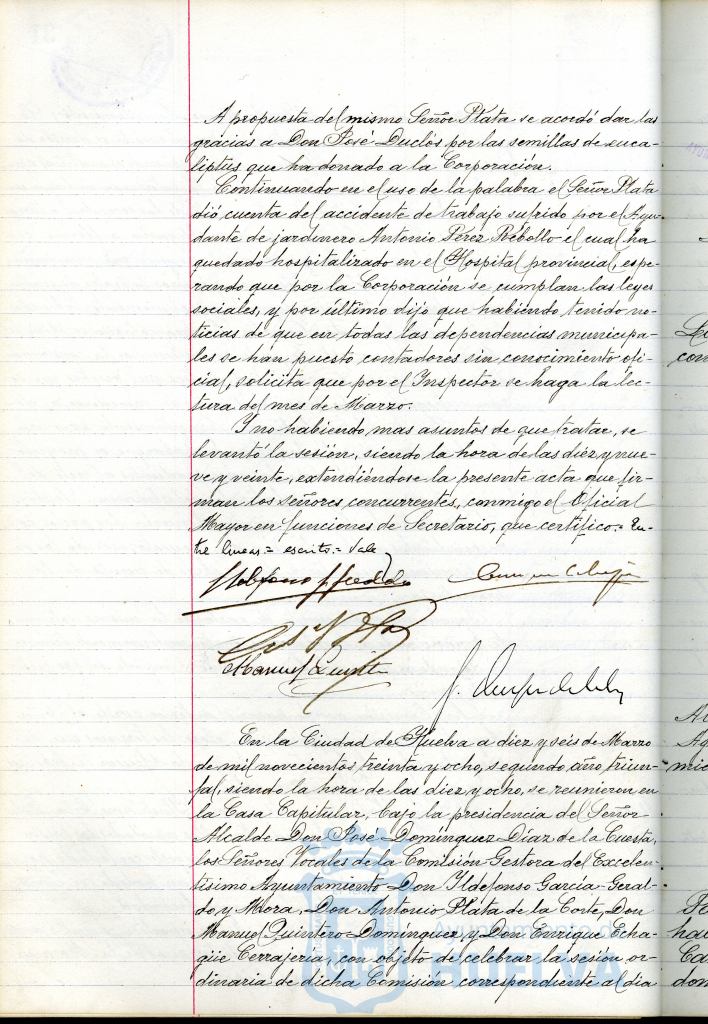 A propuesta del mismo Señor Plata se acordó dar las
gracias a Don José Duclós por las semillas de euca-
liptus que ha donado a la Corporación.
Continuando en el uso de la palabra el Señor Plata
dió cuenta del accidente de trabajo sufrido por el Ayu-
dante de jardinero Antonio Pérez Rebollo el cual ha
quedado hospitalizado en el Hospital provincial, espe-
rando que por la Corporación se cumplan las leyes
sociales, y por último dijo que habiendo tenido no-
ticias de que en todas las dependencias municipa-
les se han puesto contadores sin conocimiento ofi-
cial, solicita que por el Inspector se haga la lec-
tura del mes de Marzo.
Y no habiendo mas asuntos de que tratar, se
levantó la sesión, siendo la hora de las diez y nue-
ve y veinte, extendiéndose la presente acta que fir-
man los señores concurrentes, conmigo el Oficial
Mayor en funciones de Secretario, que certifico.= En-
tre lineas = escrito.= Vale
Manuel Quintero
En la Ciudad de Huelva a diez y seis de Marzo
de mil novecientos treinta y ocho, segundo año triun-
fal, siendo la hora de las diez y ocho, se reunieron en
la Casa Capitular, bajo la presidencia del Señor
Alcalde Don José Domínguez Díaz de la Cuesta,
los Señores Vocales de la Comisión Gestora del Excelen-
tísimo Ayuntamiento Don Ildefonso García-Geral-
do y Mora, Don Antonio Plata de la Corte, Don
Manuel Quintero Domínguez y Don Enrique Echa-
güe Cerrajería, con objeto de celebrar la sesión or-
dinaria de dicha Comisión correspondiente al dia
HUELVA